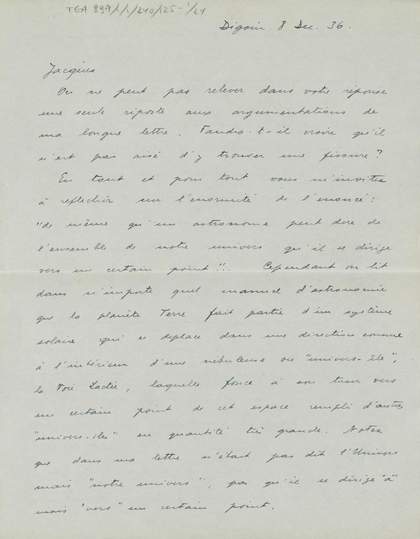 TGA 899/1/1/240/25-1/21
Digoin 8 Dec. 36.
Jacques
On ne peut pas relever dans votre réponse
une seule riposte aux argumentations de
ma longue lettre. Faudra-t-il croire qu'il
n'est pas aisé d'y trouver une fissure?
En tout et pour tout vous m'invitez
à réfléchir sur l'énormité de l'énoncé:
"de même qu'un astronome peut dire de
l'ensemble de notre univers qu'il se dirige
vers un certain point". Cependant on lit
dans n'importe quel manuel d'astronomie
que la planète Terre fait partie d'un système
solaire qui se déplace dans une direction connue
à l'intérieur d'une nébuleuse ou "univers-île",
la Voie Lactée, laquelle fonce à son tour vers
un certain point de cet espace rempli d'autres
"univers-îles" en quantité très grande. Notez
que dans ma lettre n'était pas dit l'Univers
mais "notre univers", pas qu'il se dirige "à"
mais "vers" un certain point.